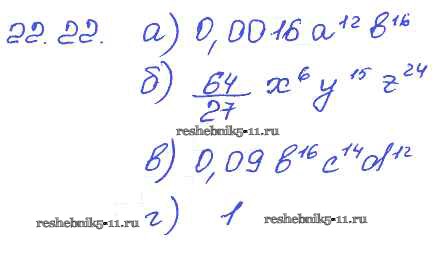 22.22. а) 0,0016 a¹² b¹⁶
б) 64/27 x⁶ y¹⁵ z²⁴
reshebnik5-11.ru
в) 0,09 b¹⁶ c¹⁴ d¹²
reshebnik5-11.ru г) 1 reshebnik5-11.ru